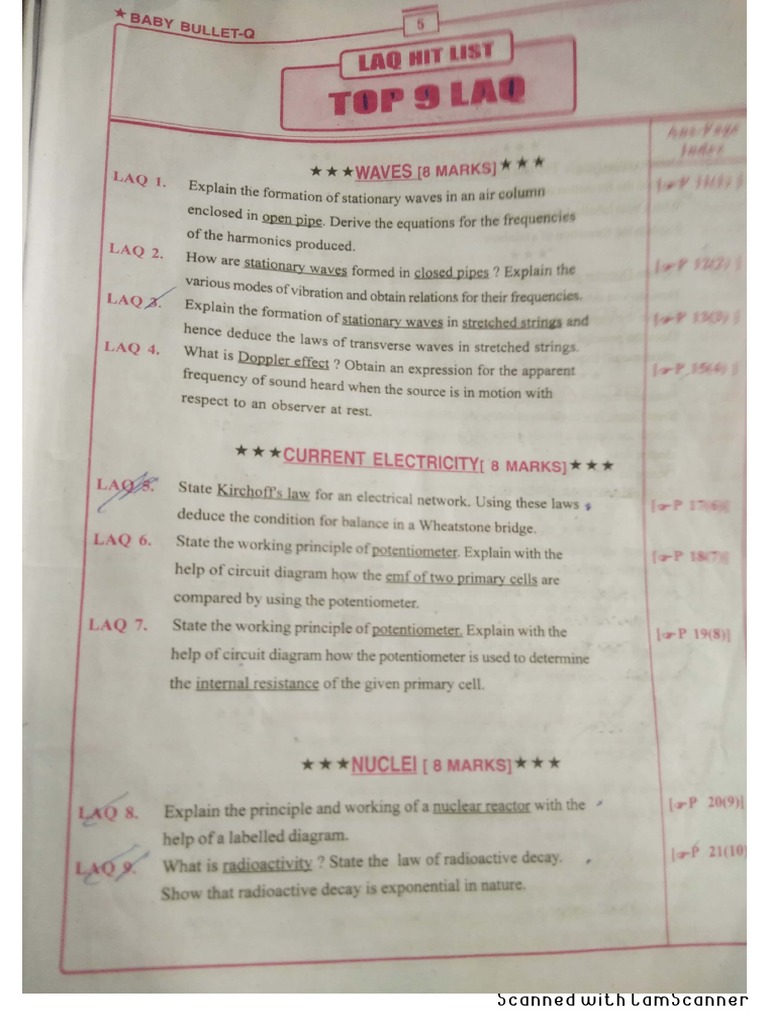 ★ BABY BULLET-Q
5
LAQ HIT LIST
TOP 9 LAQ
★ ★ ★ WAVES [8 MARKS] ★ ★ ★
LAQ 1. Explain the formation of stationary waves in an air column
enclosed in open pipe. Derive the equations for the frequencies
of the harmonics produced.
LAQ 2. How are stationary waves formed in closed pipes ? Explain the
various modes of vibration and obtain relations for their frequencies.
LAQ 3. Explain the formation of stationary waves in stretched strings and
hence deduce the laws of transverse waves in stretched strings.
LAQ 4. What is Doppler effect ? Obtain an expression for the apparent
frequency of sound heard when the source is in motion with
respect to an observer at rest.
[☞P 15(4) ]
★ ★ ★ CURRENT ELECTRICITY[ 8 MARKS] ★ ★ ★
LAQ 5. State Kirchoff's law for an electrical network. Using these laws
deduce the condition for balance in a Wheatstone bridge.
[☞P 17(6)]
LAQ 6. State the working principle of potentiometer. Explain with the
help of circuit diagram how the emf of two primary cells are
compared by using the potentiometer.
[☞P 18(7)]
LAQ 7. State the working principle of potentiometer. Explain with the
help of circuit diagram how the potentiometer is used to determine
the internal resistance of the given primary cell.
[☞P 19(8)]
★ ★ ★ NUCLEI [ 8 MARKS] ★ ★ ★
LAQ 8. Explain the principle and working of a nuclear reactor with the
help of a labelled diagram.
[☞P 20(9)]
LAQ 9. What is radioactivity ? State the law of radioactive decay.
Show that radioactive decay is exponential in nature.
[☞P 21(10)
Scanned with CamScanner